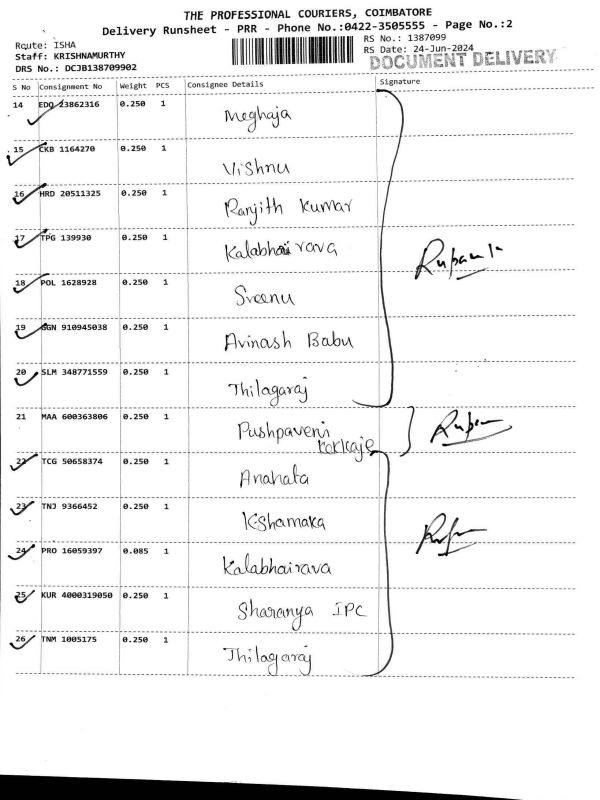 THE PROFESSIONAL COURIERS, COIMBATORE
Delivery Runsheet - PRR - Phone No.:0422-3505555 - Page No.:2
Route: ISHA
Staff: KRISHNAMURTHY
DRS No.: DCJB138709902
RS No.: 1387099
RS Date: 24-Jun-2024
DOCUMENT DELIVERY
S No Consignment No Weight PCS Consignee Details Signature
14 EDQ 23862316 0.250 1 Meghaja
15 CKB 1164270 0.250 1 Vishnu
16 HRD 20511325 0.250 1 Ranjith Kumar
17 TPG 139930 0.250 1 Kalabhairava
18 POL 1628928 0.250 1 Sreenu
19 GGN 910945038 0.250 1 Avinash Babu
20 SLM 348771559 0.250 1 Thilagaraj
21 MAA 600363806 0.250 1 Pushpaveni
22 TCG 50658374 0.250 1 Anahata
23 TNJ 9366452 0.250 1 Kshamaka
24 PRO 16059397 0.085 1 Kalabhairava
25 KUR 4000319050 0.250 1 Sharanya IPC
26 TNM 1005175 0.250 1 Thilagaraj